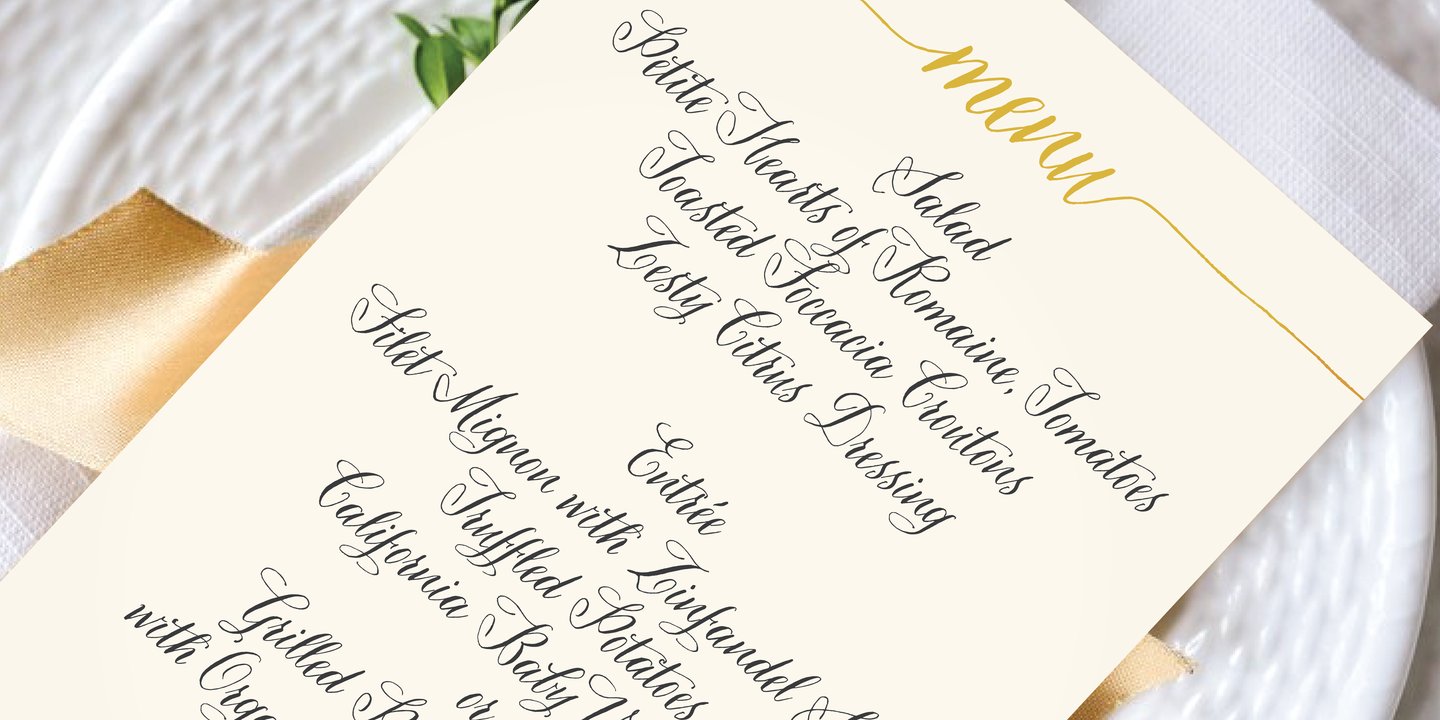 menu
Salad
Petite Hearts of Romaine, Tomatoes
Toasted Foccacia Croutons
Zesty Citrus Dressing
Entrée
Filet Mignon with Zinfandel
Truffled Potatoes
California Baby
or
Grilled
with